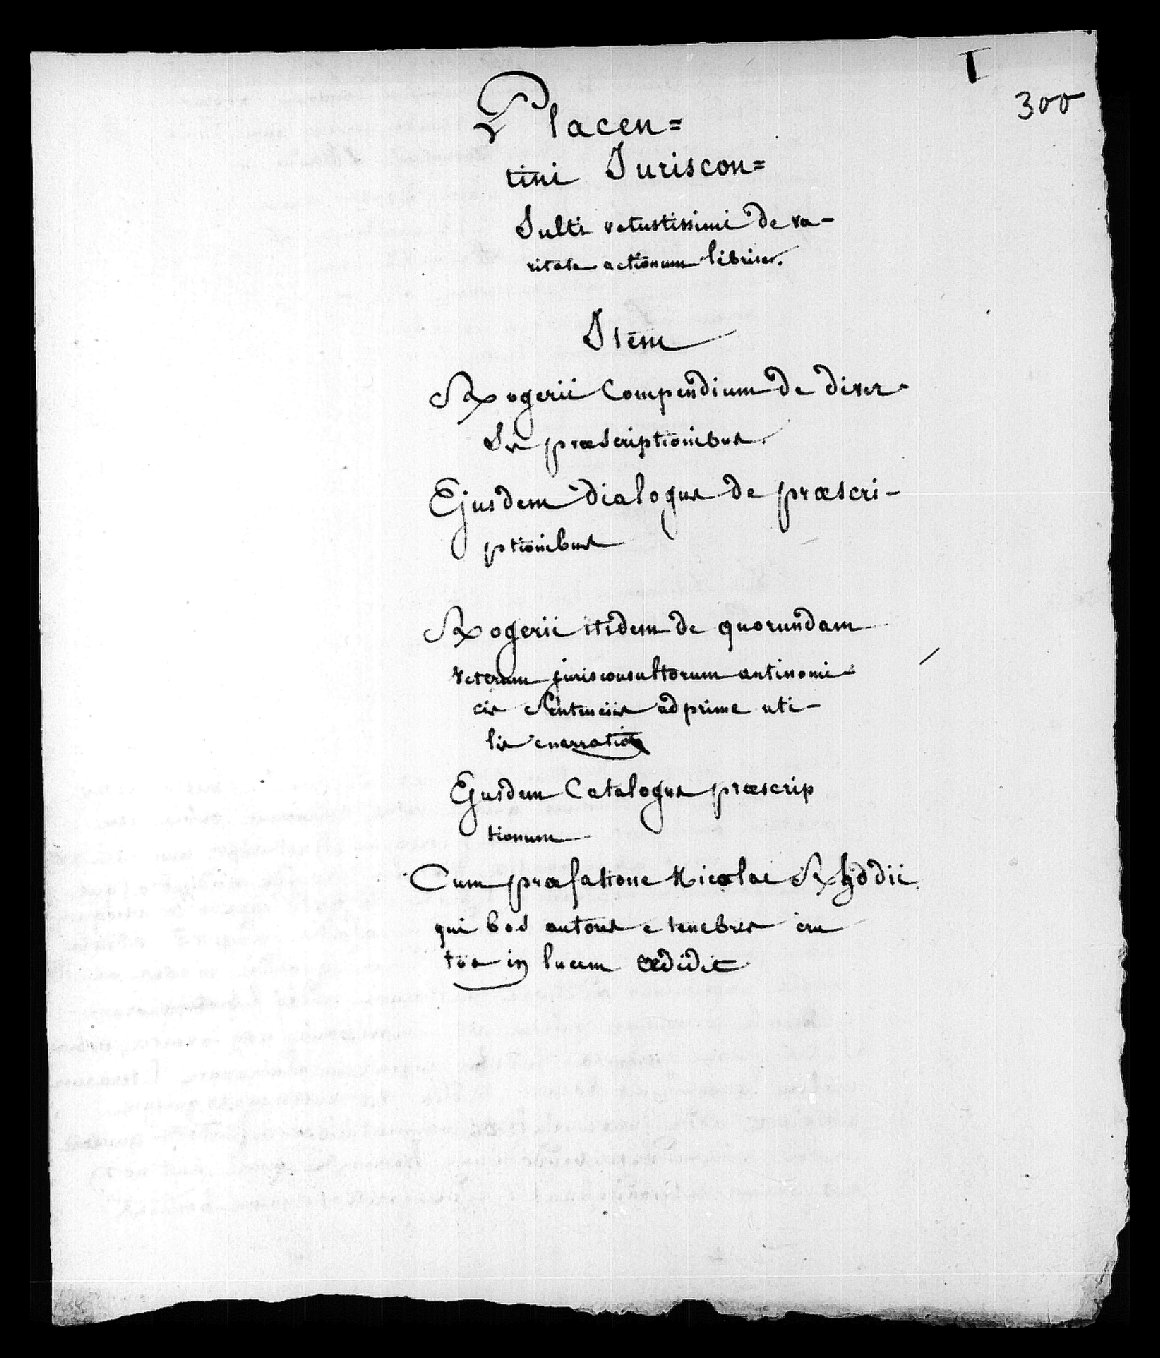 I
300
Placen=
tini Juriscon=
sulti vetustissimi de va-
ritate actionum libris.
Item
Rogerii Compendium de diver
sis præscriptionibus.
Ejusdem dialogus de præscri-
ptionibus
Rogerii itidem de quorundam
veterum jurisconsultorum antinomi
cis sententiis adprime uti-
lis enarratio
Ejusdem Catalogus præscrip
tionum
Cum præfatione Nicolai Rhydii
qui hos autores e tenebris eru
tos in lucem ædidit